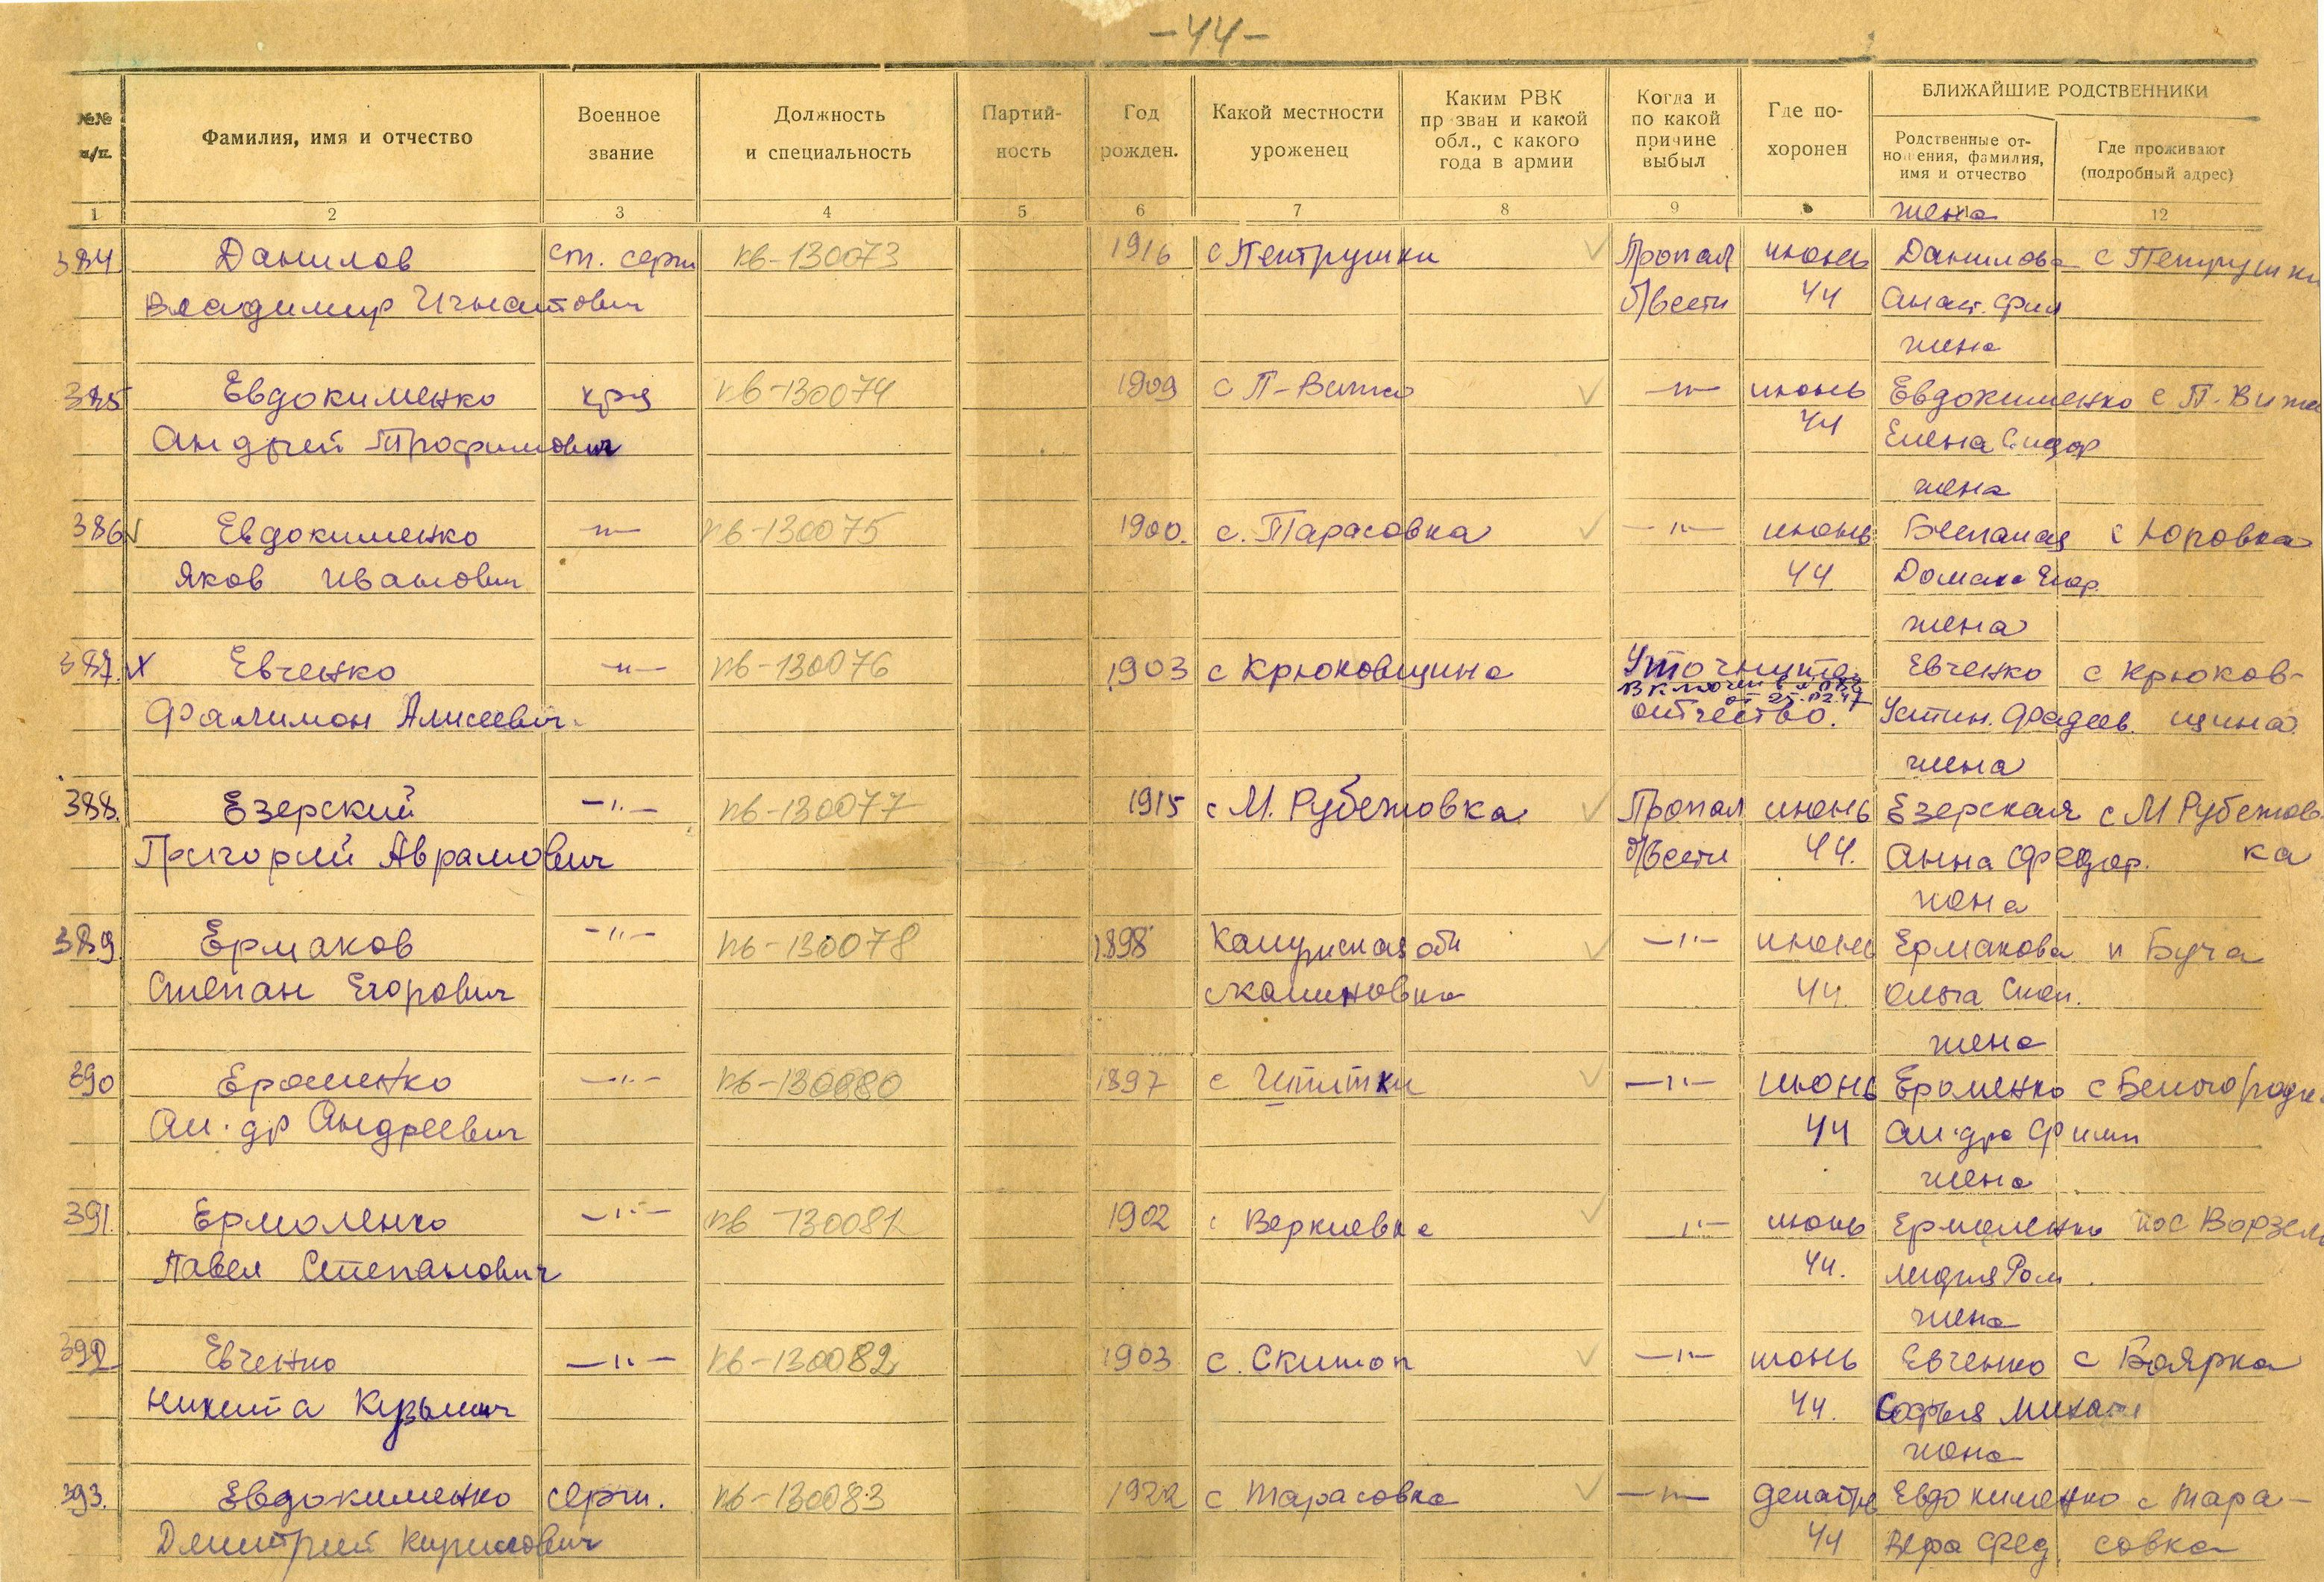 -44-
№№ п/п. Фамилия, имя и отчество Военное звание Должность и специальность Партий- ность Год рожден. Какой местности уроженец Каким РВК пр зван и какой обл., с какого года в армии Когда и по какой причине выбыл Где по- хоронен БЛИЖАЙШИЕ РОДСТВЕННИКИ
Родственные от- ношения, фамилия, имя и отчество Где проживают (подробный адрес)
1 2 3 4 5 6 7 8 9 12
жена
384 Данилов ст. серж кв-130073 1916 с Пентрушки Пропал июнь Данилова с Петрушки
Владимир Игнатович б/вести 44 Анаст. Фил
жена
385 Евдокименко кра кв-130074 1909 с П-Вита -"- июнь Евдокименко с П-Вита
Андрей Трофимович 44 Елена Сидор
жена
386 Евдокименко -"- кв-130075 1900. с. Тарасовка -"- июнь с Юровка
Яков Иванович 44 Домана Егор.
жена
387. х Евченко -"- кв-130076 1903 с Крюковщина Уточнить Евченко с Крюков-
включен в
от 25.02.47
Филимон Алисеевич. отчество. Устин. Фадеев. щина.
жена
388. Езерский -"- кв-130077 1915 с М. Рубежовка Пропал июнь Езерская с М Рубежов
Григорий Аврамович б/вести 44. Анна Федор. ка
жена
389 Ермаков -"- кв-130078 1898 Калужская обл -"- июнь Ермакова п Буча
Степан Егорович с Калиновка 44. Ольга Степ.
жена
390 Ероменко -"- кв-130080 1897 с Шпитьки -"- июнь Ероменко с Белогородк
Ал-др Андреевич 44 Ал-дра Филип
жена
391. Ермоленко -"- кв-130081 1902 с Веркиевка -"- июнь Ермоленко пос Ворзель
Павел Степанович 44. Лидия Ром.
жена
392 Евченко -"- кв-130082 1903 с. Скиток -"- июнь Евченко с Боярка
Никита Кузьмич 44. Софья Михайл
жена
393. Евдокименко серж. кв-130083 1922 с Тарасовка -"- декабрь Евдокименко с Тара-
Дмитрий Кирилович 44 Вера Фед. совка